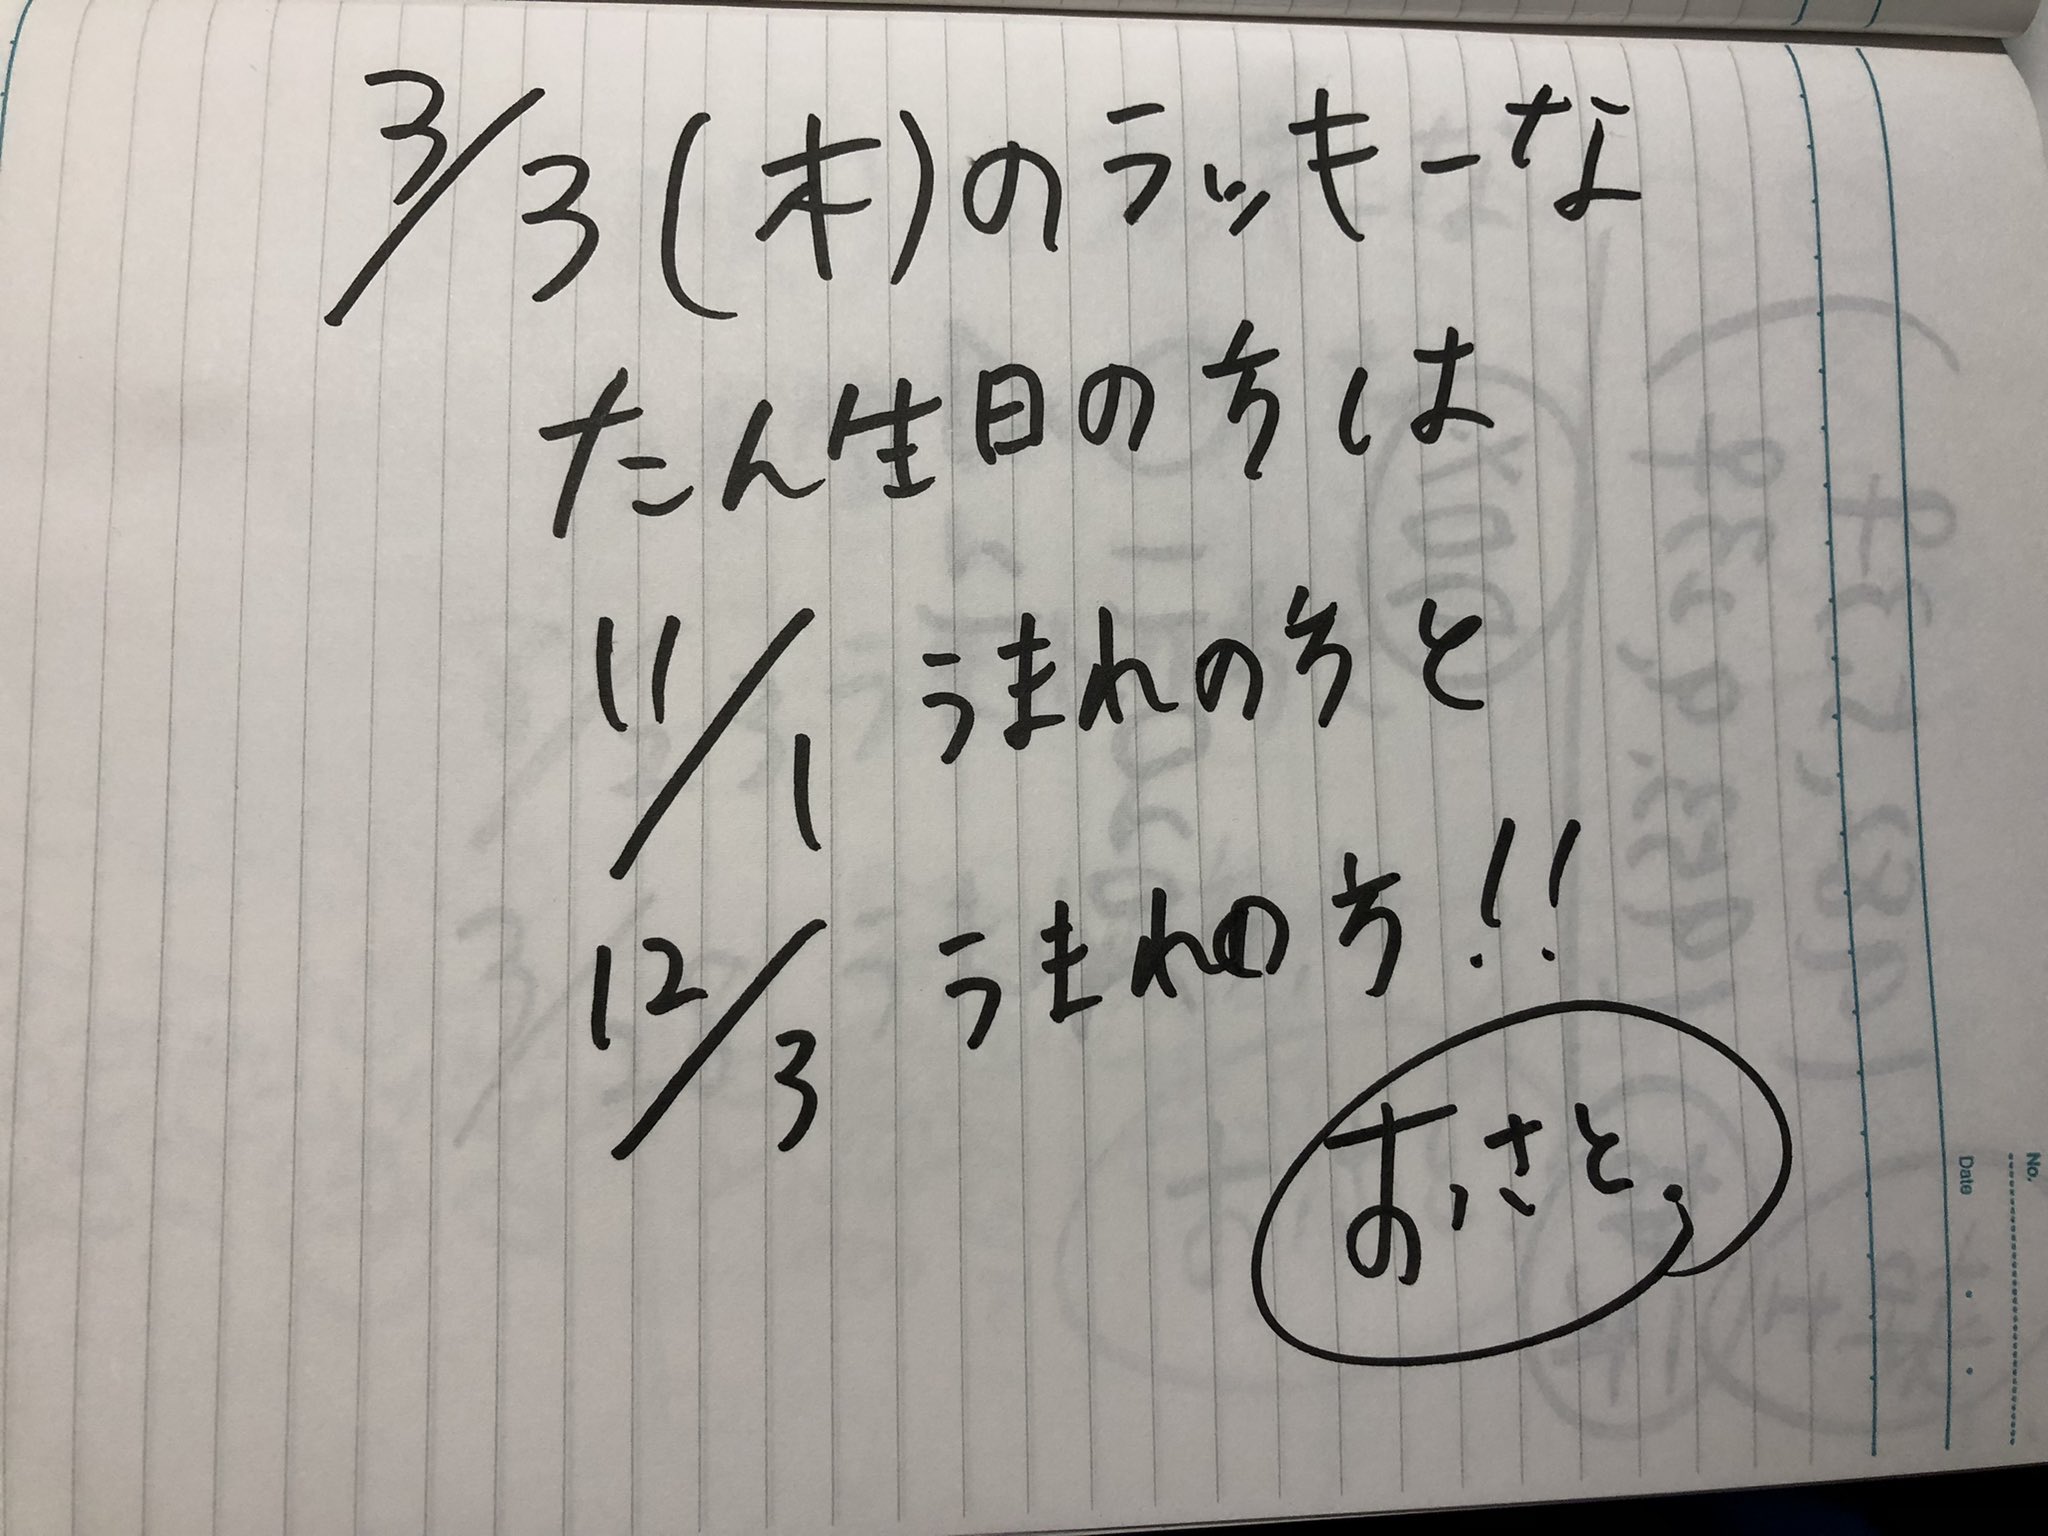 3/3(木)のラッキーな
たん生日の方は
11/1 うまれの方と
12/3 うまれの方!!
おさと
No.
Date